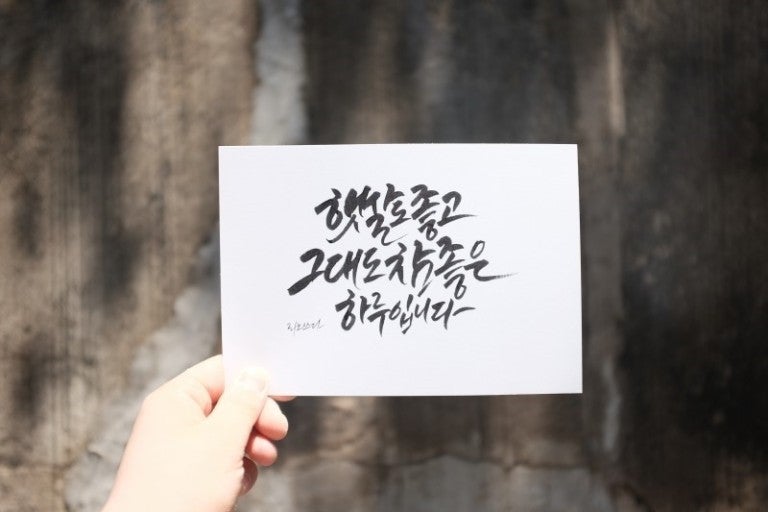 햇살도좋고
그대도참좋은
하루입니다